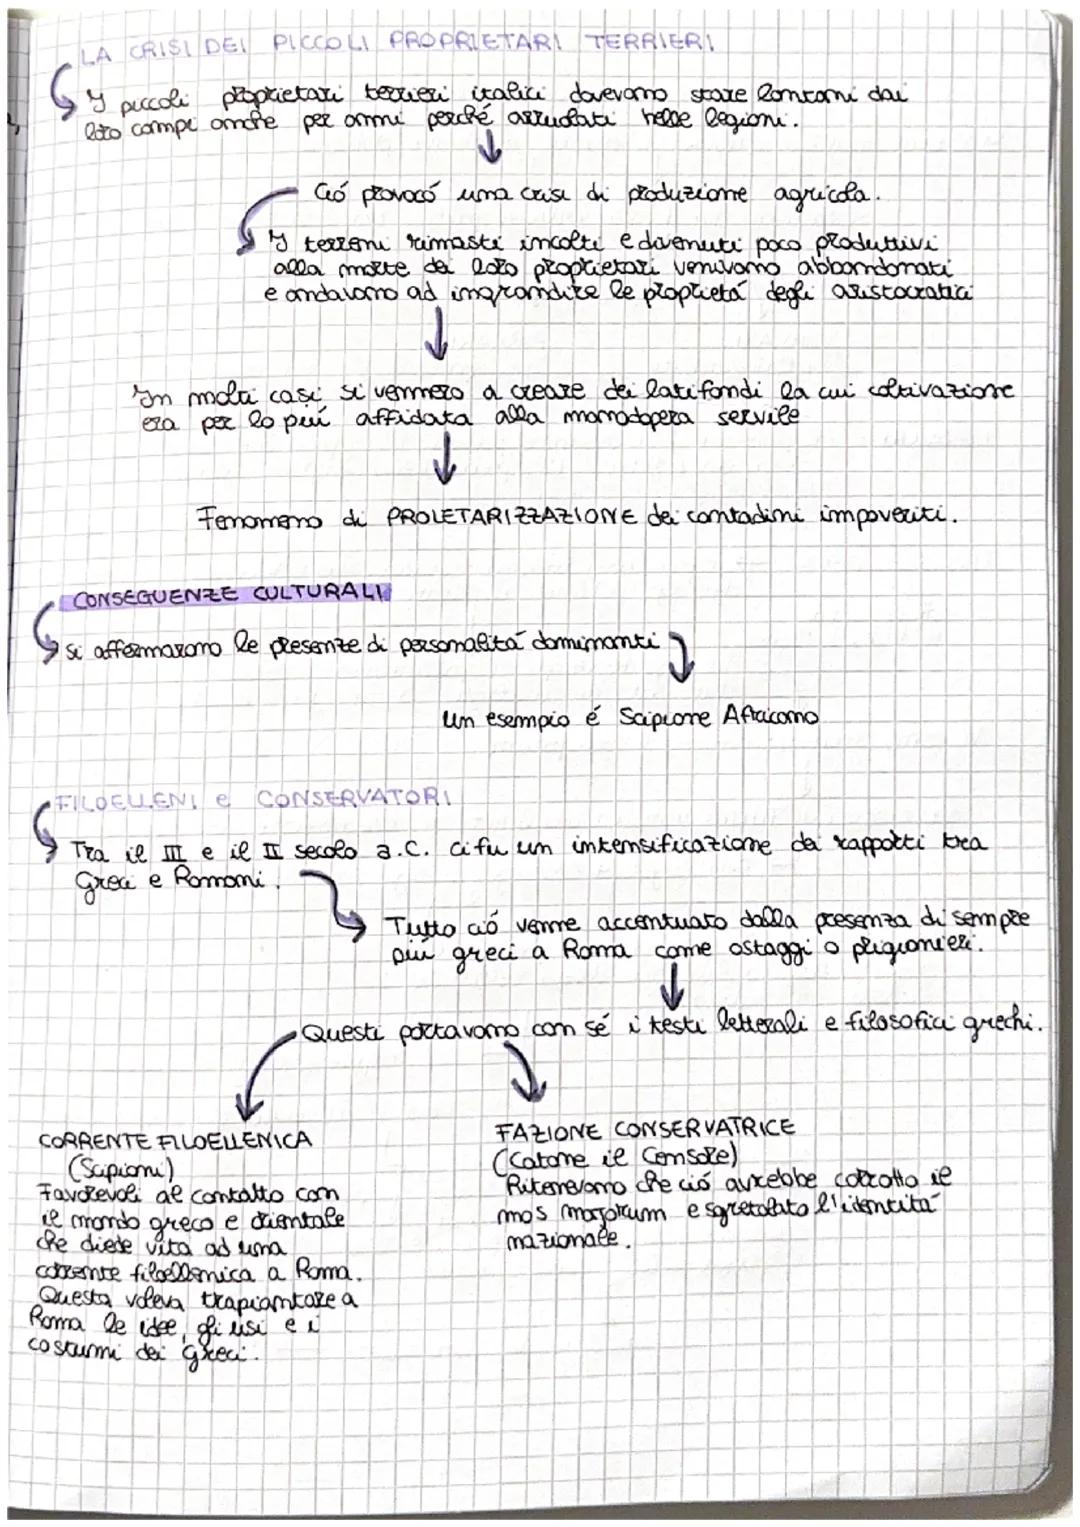 LA CRISI DEI PICCOLI PROPRIETARI TERRIERI
I piccoli proprietari terrieri italici dovevano stare lontani dai
loro campi anche per anni perché arruolati nelle legioni.
Ció provocó una crisi di produzione agricola.
I terreni rimasti incolti e divenuti poco produttivi
alla morte dei loro proprietari venivano abbandonati
e andavano ad ingrandire le proprietá degli aristocratici
In molti casi si vennero a creare dei latifondi la cui coltivazione
era per lo piú affidata alla manodopera servile
Fenomeno di PROLETARIZZAZIONE dei contadini impoveriti.
CONSEGUENZE CULTURALI
si affermarono le presenze di personalitá dominanti
un esempio é Scipione Africano
FILOELLENI e CONSERVATORI
Tra il III e il II secolo a.C. ci fu un intensificazione dei rapporti tra
Greci e Romani.
Tutto ció venne accentuato dalla presenza di sempre
piú greci a Roma come ostaggi o prigionieri.
Questi portavano con sé i testi letterali e filosofici grechi.
CORRENTE FILOELLENICA
(Scipioni)
Favorevoli al contatto con
il mondo greco e orientale
che diede vita ad una
corrente filoellenica a Roma.
Questa voleva trapiantare a
Roma le idee, gli usi e i
costumi dei Greci.
FAZIONE CONSERVATRICE
(Catone il Censore)
Ritenevano che ció avrebbe corrotto il
mos maiorum e sgretolato l'identitá
nazionale.